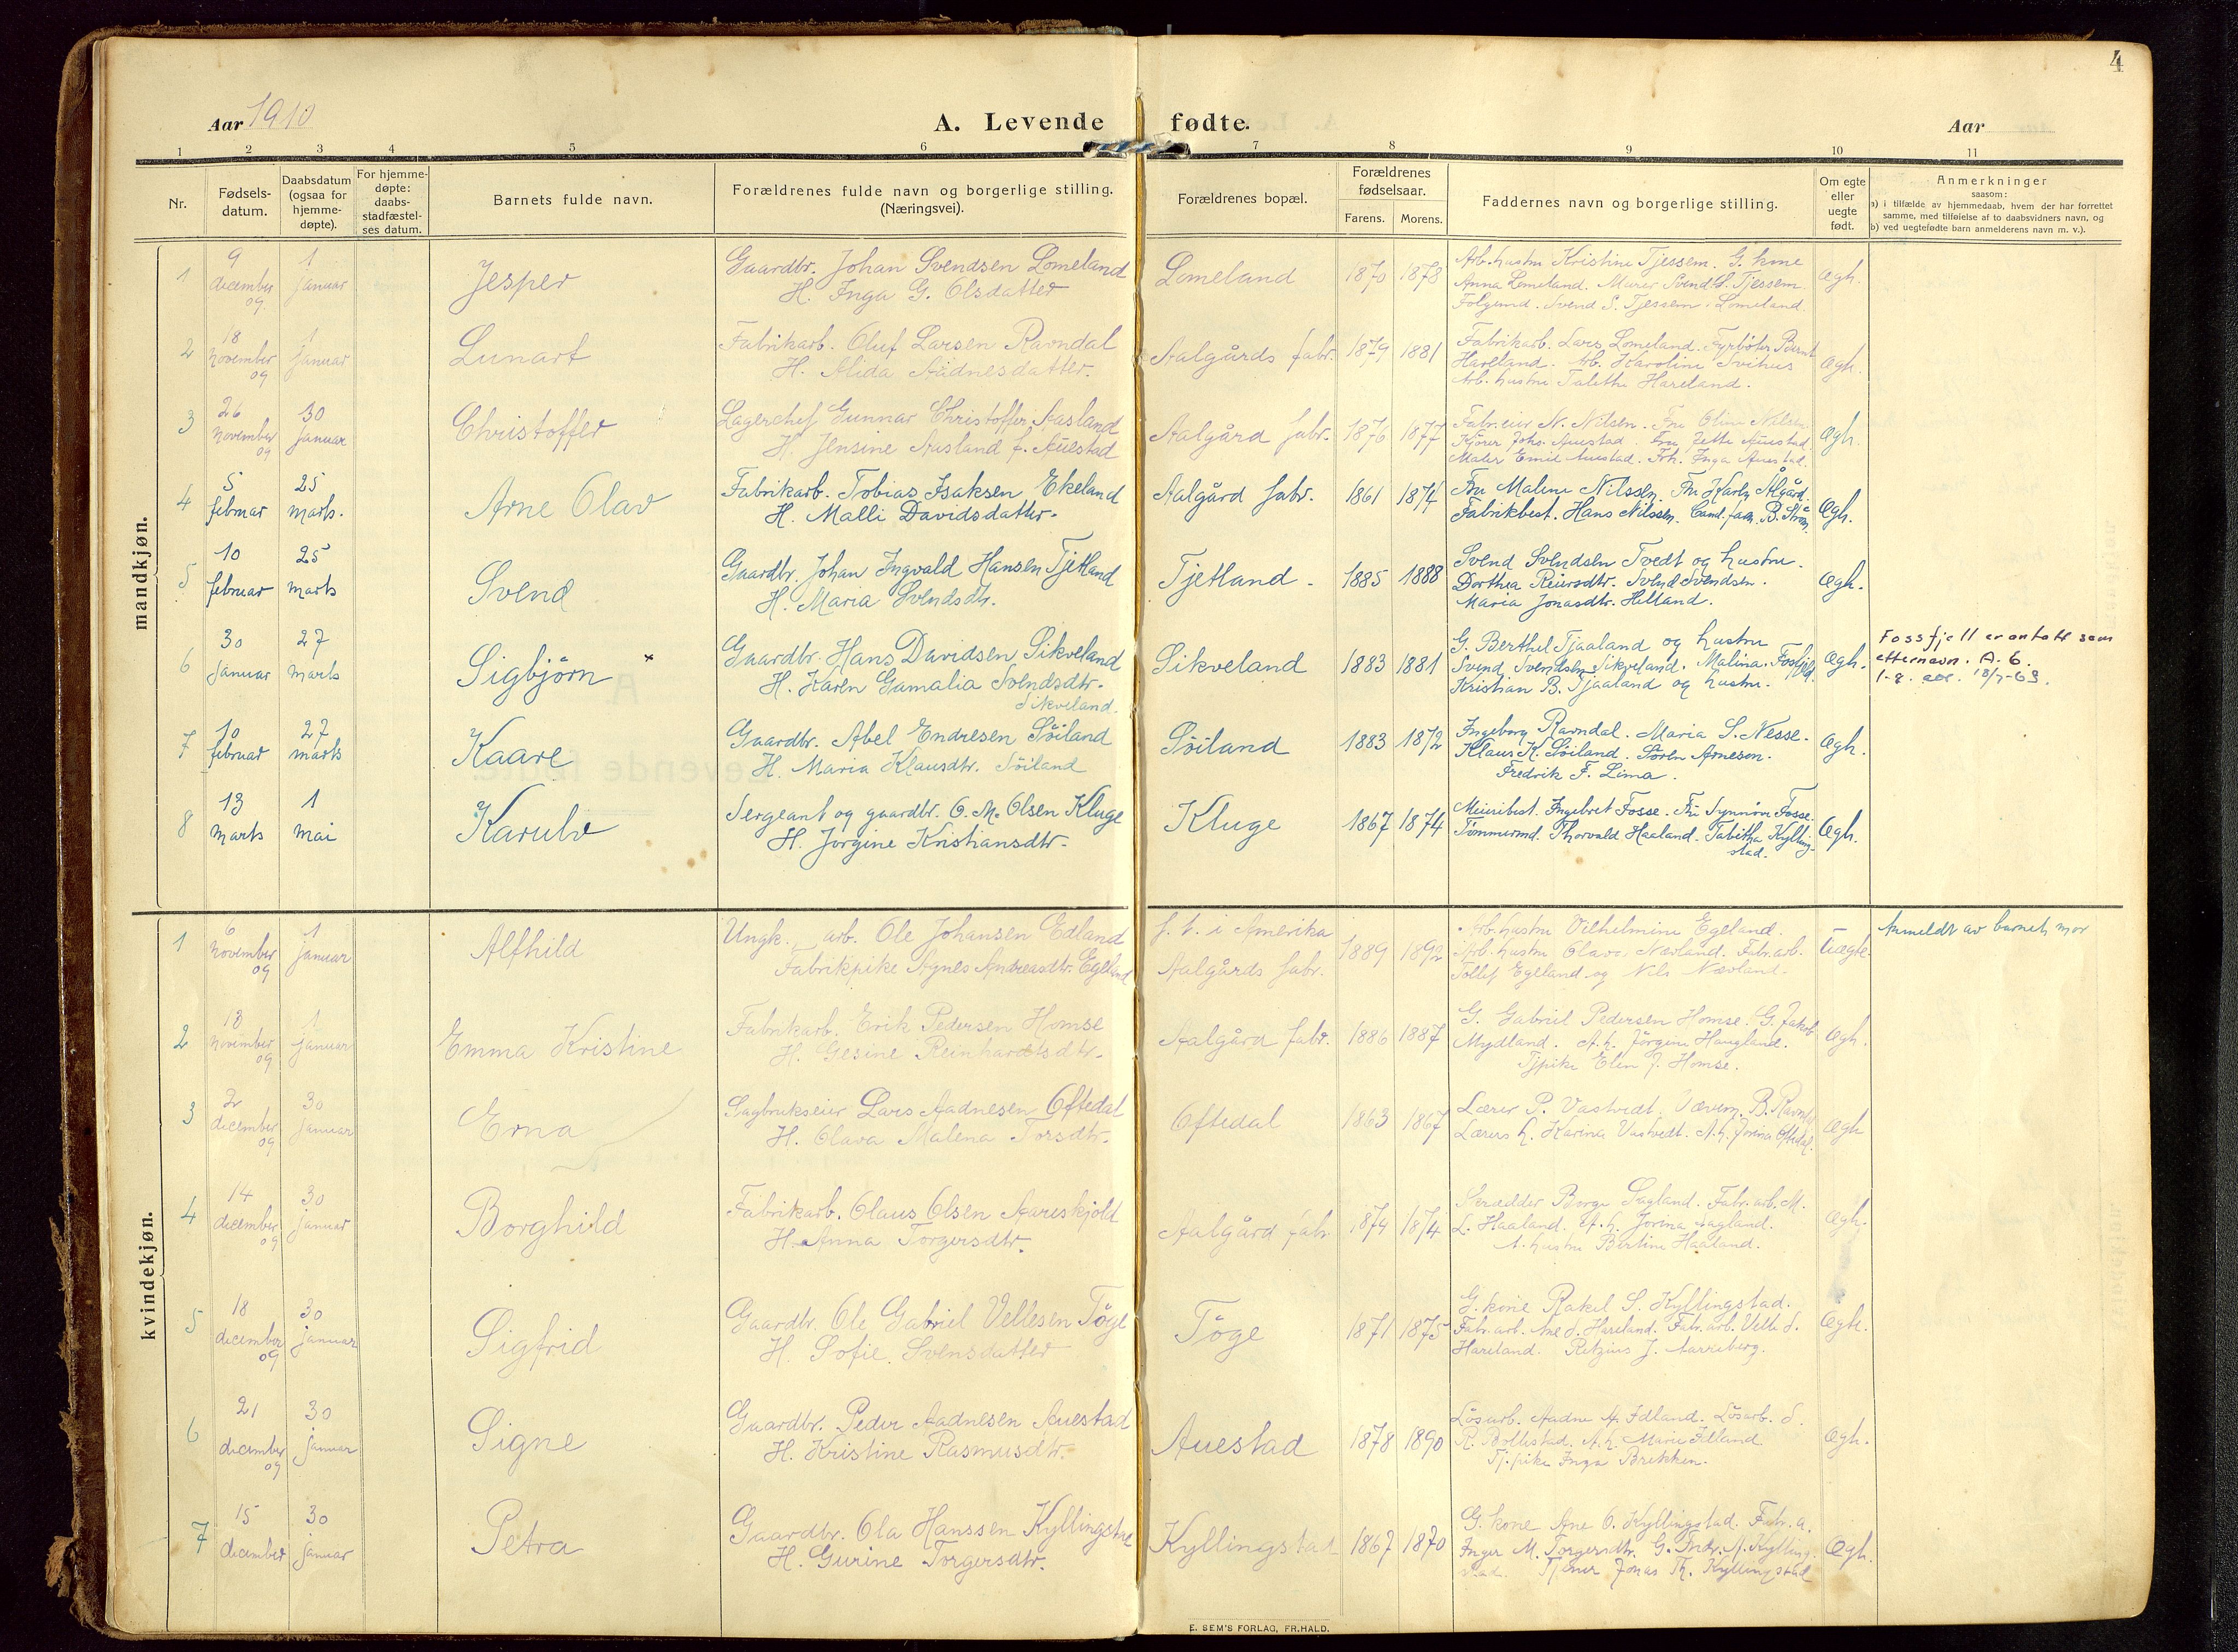 4
Aar 1910
A. Levende fødte.
Aar
1 2 3 4 5 6 7 8 9 10 11
Nr.
Fødsels-
datum.
Daabsdatum
(ogsaa for
hjemme-
døpte).
For hjemme-
døpte:
daabs-
stadfæstel-
ses datum.
Barnets fulde navn.
Forældrenes fulde navn og borgerlige stilling.
(Næringsvei).
Forældrenes bopæl.
Forældrenes
fødselsaar.
Farens. Morens.
Faddernes navn og borgerlige stilling.
Om egte
eller
uegte
født.
Anmerkninger
saasom:
a) i tilfælde av hjemmedaab, hvem der har forrettet
samme, med tilføielse af to daabsvidners navn, og
b) ved uegtefødte barn anmelderens navn m. v.).
mandkjøn.
1
9
december
09
1
januar
Jesper
Gaardbr. Johan Svendsen Lomeland
H. Inga G. Olsdatter
Lomeland
1870 1878
Arb. hustru Kristine Tjessem. G. kone
Anna Lomeland. Murer Svend S. Tjessem.
Svend S. Tjessem. Lomeland.
Ægh.
2
18
november
09
1
januar
Lunart
Fabrikarb. Oluf Larsen Ravndal
H. Alida Aadnesdatter.
Aalgårds fabr.
1879 1881
Fabrikarb. Lars Lomeland. Fyrbøter Bernt
Hareland. Arb. Karoline Svihus
Arb. hustru Talette Hareland.
Ægh.
3
26
november
09
30
januar
Christoffer
Lagerchef Gunnar Christoffer Aasland
H. Jensine Aasland f. Auestad
Aalgård fabr.
1876 1877
Fabr.eier N. Nilsen. Fru Oline Nilsen
Kjører Johs. Auestad. Fru Jette Auestad.
Maler Emil Auestad. Frk. Inga Auestad.
Ægh.
4
5
februar
25
marts.
Arne Olav
Fabrikarb. Tobias Isaksen Ekeland
H. Malli Davidsdatter.
Aalgård fabr.
1861 1874
Fru Malene Nilssen. Fru Karly Ålgård.
Fabrikbest. Hans Nilssen. Cand. B. Strøm
Ægh.
5
10
februar
25
marts
Svend
Gaardbr. Johan Ingvald Hansen Tjetland
H. Maria Svendsdtr.
Tjetland.
1885 1888
Svend Svendsen Tvedt og hustru.
Dorthea Reiersdtr. Svend Svendsen.
Maria Jonasdtr. Helland.
Ægh.
6
30
januar
27
marts
Sigbjørn ×
Gaardbr. Hans Davidsen Sikveland
H. Karen Gamalia Svendsdtr.
Sikveland.
Sikveland
1883 1881
G. Berthel Tjaaland og hustru
Svend Svendsen Sikveland. Malina Fosfjeld.
Kristian B. Tjaaland og hustru.
Ægh.
Fossfjell er antatt som
etternavn. A. 6.
18/7-63.
7
10
februar
27
marts
Kaare
Gaardbr. Abel Endresen Søiland
H. Maria Klausdtr. Søiland
Søiland
1883 1872
Ingeborg Ravndal. Maria S. Nesse.
Klaus K. Søiland. Søren Arnesen.
Fredrik F. Lima.
Ægh.
8
13
marts
1
mai
Karulv
Sergeant og gaardbr. O. M. Olsen Kluge
H. Jørgine Kristiansdtr.
Kluge
1867 1874
Meieribest. Ingebret Fosse. Fru Synnøve Fosse.
Tømmermd. Thorvald Haaland. Tabitha Kylling-
stad.
Ægh.
kvindekjøn.
1
6
november
09
1
januar
Alfhild
Ungk. arb. Ole Johansen Edland
Fabrikpike Agnes Andreasdtr. Egeland
f. t. i Amerika
Aalgårds fabr.
1889 1892
Arb. hustru Vilhelmine Egeland.
Arb. hustru Olava Nævland. Fabr.arb.
Tollef Egeland og Nils Nævland.
Uægte
Anmeldt av barnets mor
2
13
november
09
1
januar
Emma Kristine
Fabrikarb. Erik Pedersen Homse
H. Gesine Reinhardtsdtr.
Aalgård fabr.
1886 1887
G. Gabriel Pedersen Homse. G. Jakob
Mydland. A. h. Jørgine Haugland.
Tjpike Elen J. Homse.
Ægh.
3
2
december
09
30
januar
Erna
Sagbrukseier Lars Aadnesen Oftedal
H. Olava Malena Torsdtr.
Oftedal
1863 1867
Lærer P. Vastvedt. Væverm. B. Ravndal
Lærers h. Karina Vastvedt. A. h. Jorina Oftedal.
Ægh
4
14
december
09
30
januar
Borghild
Fabrikarb. Olaus Olsen Aareskjold
H. Anna Torgersdtr.
Aalgård fabr.
1874 1874
Skrædder Børge Sagland. Fabr. arb. M.
L. Haaland. A. h. Jorina Sagland.
A. hustru Bertine Haaland.
Ægh.
5
18
december
09
30
januar
Sigfrid
Gaardbr. Ole Gabriel Vellesen Tøge
H. Sofie Svensdatter
Tøge
1871 1875
G. kone Rakel S. Kyllingstad.
Fabr. arb. Ane S. Hareland. Fabr. arb. Velle S.
Hareland. Retzius J. Aarreberg.
Ægh.
6
21
december
09
30
januar
Signe
Gaardbr. Peder Aadnesen Auestad
H. Kristine Rasmusdtr.
Auestad
1878 1890
Løsarb. Aadne A. Idland. Løsarb. S.
R. Bollestad. A. h. Marie Idland
Tj. pike Inga Brekken.
Ægh.
7
15
december
30
januar
Petra
Gaardbr. Ola Hanssen Kyllingstad
H. Gurine Torgersdtr.
Kyllingstad
1867 1870
G. kone Ane O. Kyllingstad. Fabr. a.
Inger M. Torgersdtr. G. Andr. A. Kylling-
stad. Tjener Jonas Th. Kyllingstad
Ægh.
E. SEM'S FORLAG, FR.HALD.